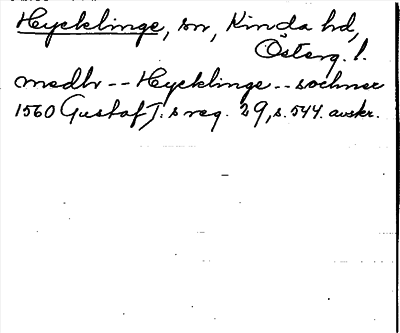 Hycklinge, sn, Kinda hd,
Österg. l.
medh -- Hycklinge -- sochner
1560 Gustaf I:s reg. 29, s. 544. avskr.